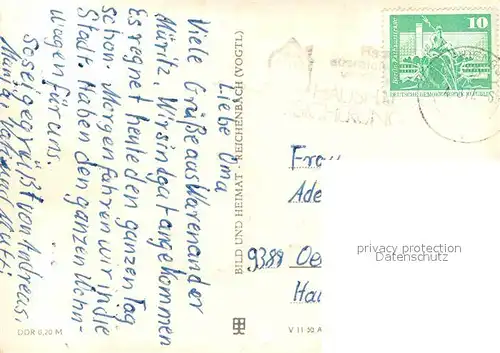 Liebe Oma
Viele Grüße aus Waren an der
Müritz. Wir sind gut angekommen
Es regnet heute den ganzen Tag
schon. Morgen fahren wir in die
Stadt. Haben den ganzen Wohn-
wagen für uns.
So sei gegrüßt von Andreas,
und
BILD UND HEIMAT · REICHENBACH (VOGTL)
DDR 0,20 M
V 11 50 A
10
DEUTSCHE DEMOKRATISCHE REPUBLIK
Frau
Ade
9388 Oe
Hau
privacy protection
Datenschutz